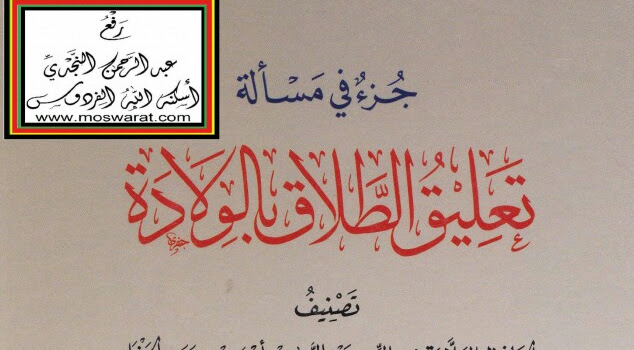 رَفْعُ
عبد الرحمن النجدي
أسكنه الله الفردوس
www.moswarat.com
جُزءٌ في مَسْألة
تَعَلِيْقُ الطَّلَاقِ بِالوِلَادَةِ
تَصْنِيفُ